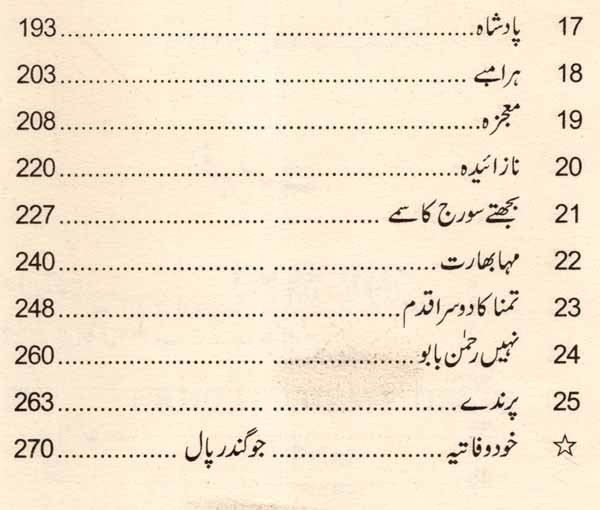 17 پادشاہ........................ ........................193
18 ہرامبے ........................ ........................203
19 معجزہ........................ ........................208
20 نازائیدہ........................ ........................220
21 بجھتے سورج کا سمے ............ ........................227
22 مہابھارت.................... ........................240
23 تمنا کا دوسرا قدم................ ........................248
24 نہیں رحمٰن بابو................ ........................260
25 پرندے........................ ........................263
☆ خود وفاتیہ.................... جوگندر پال ............270